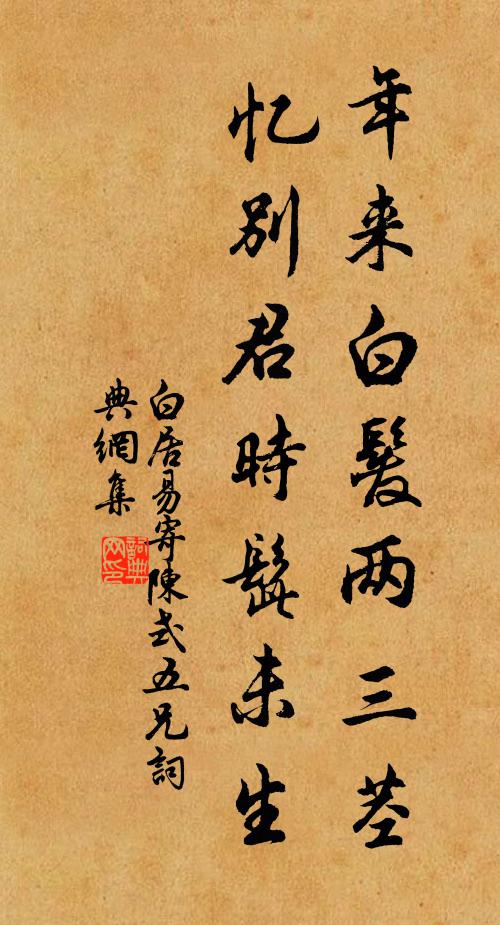 年来白髮两三茎
忆别君時髭未生
白居易寄陳式五兄詞
典網集
詞典网印